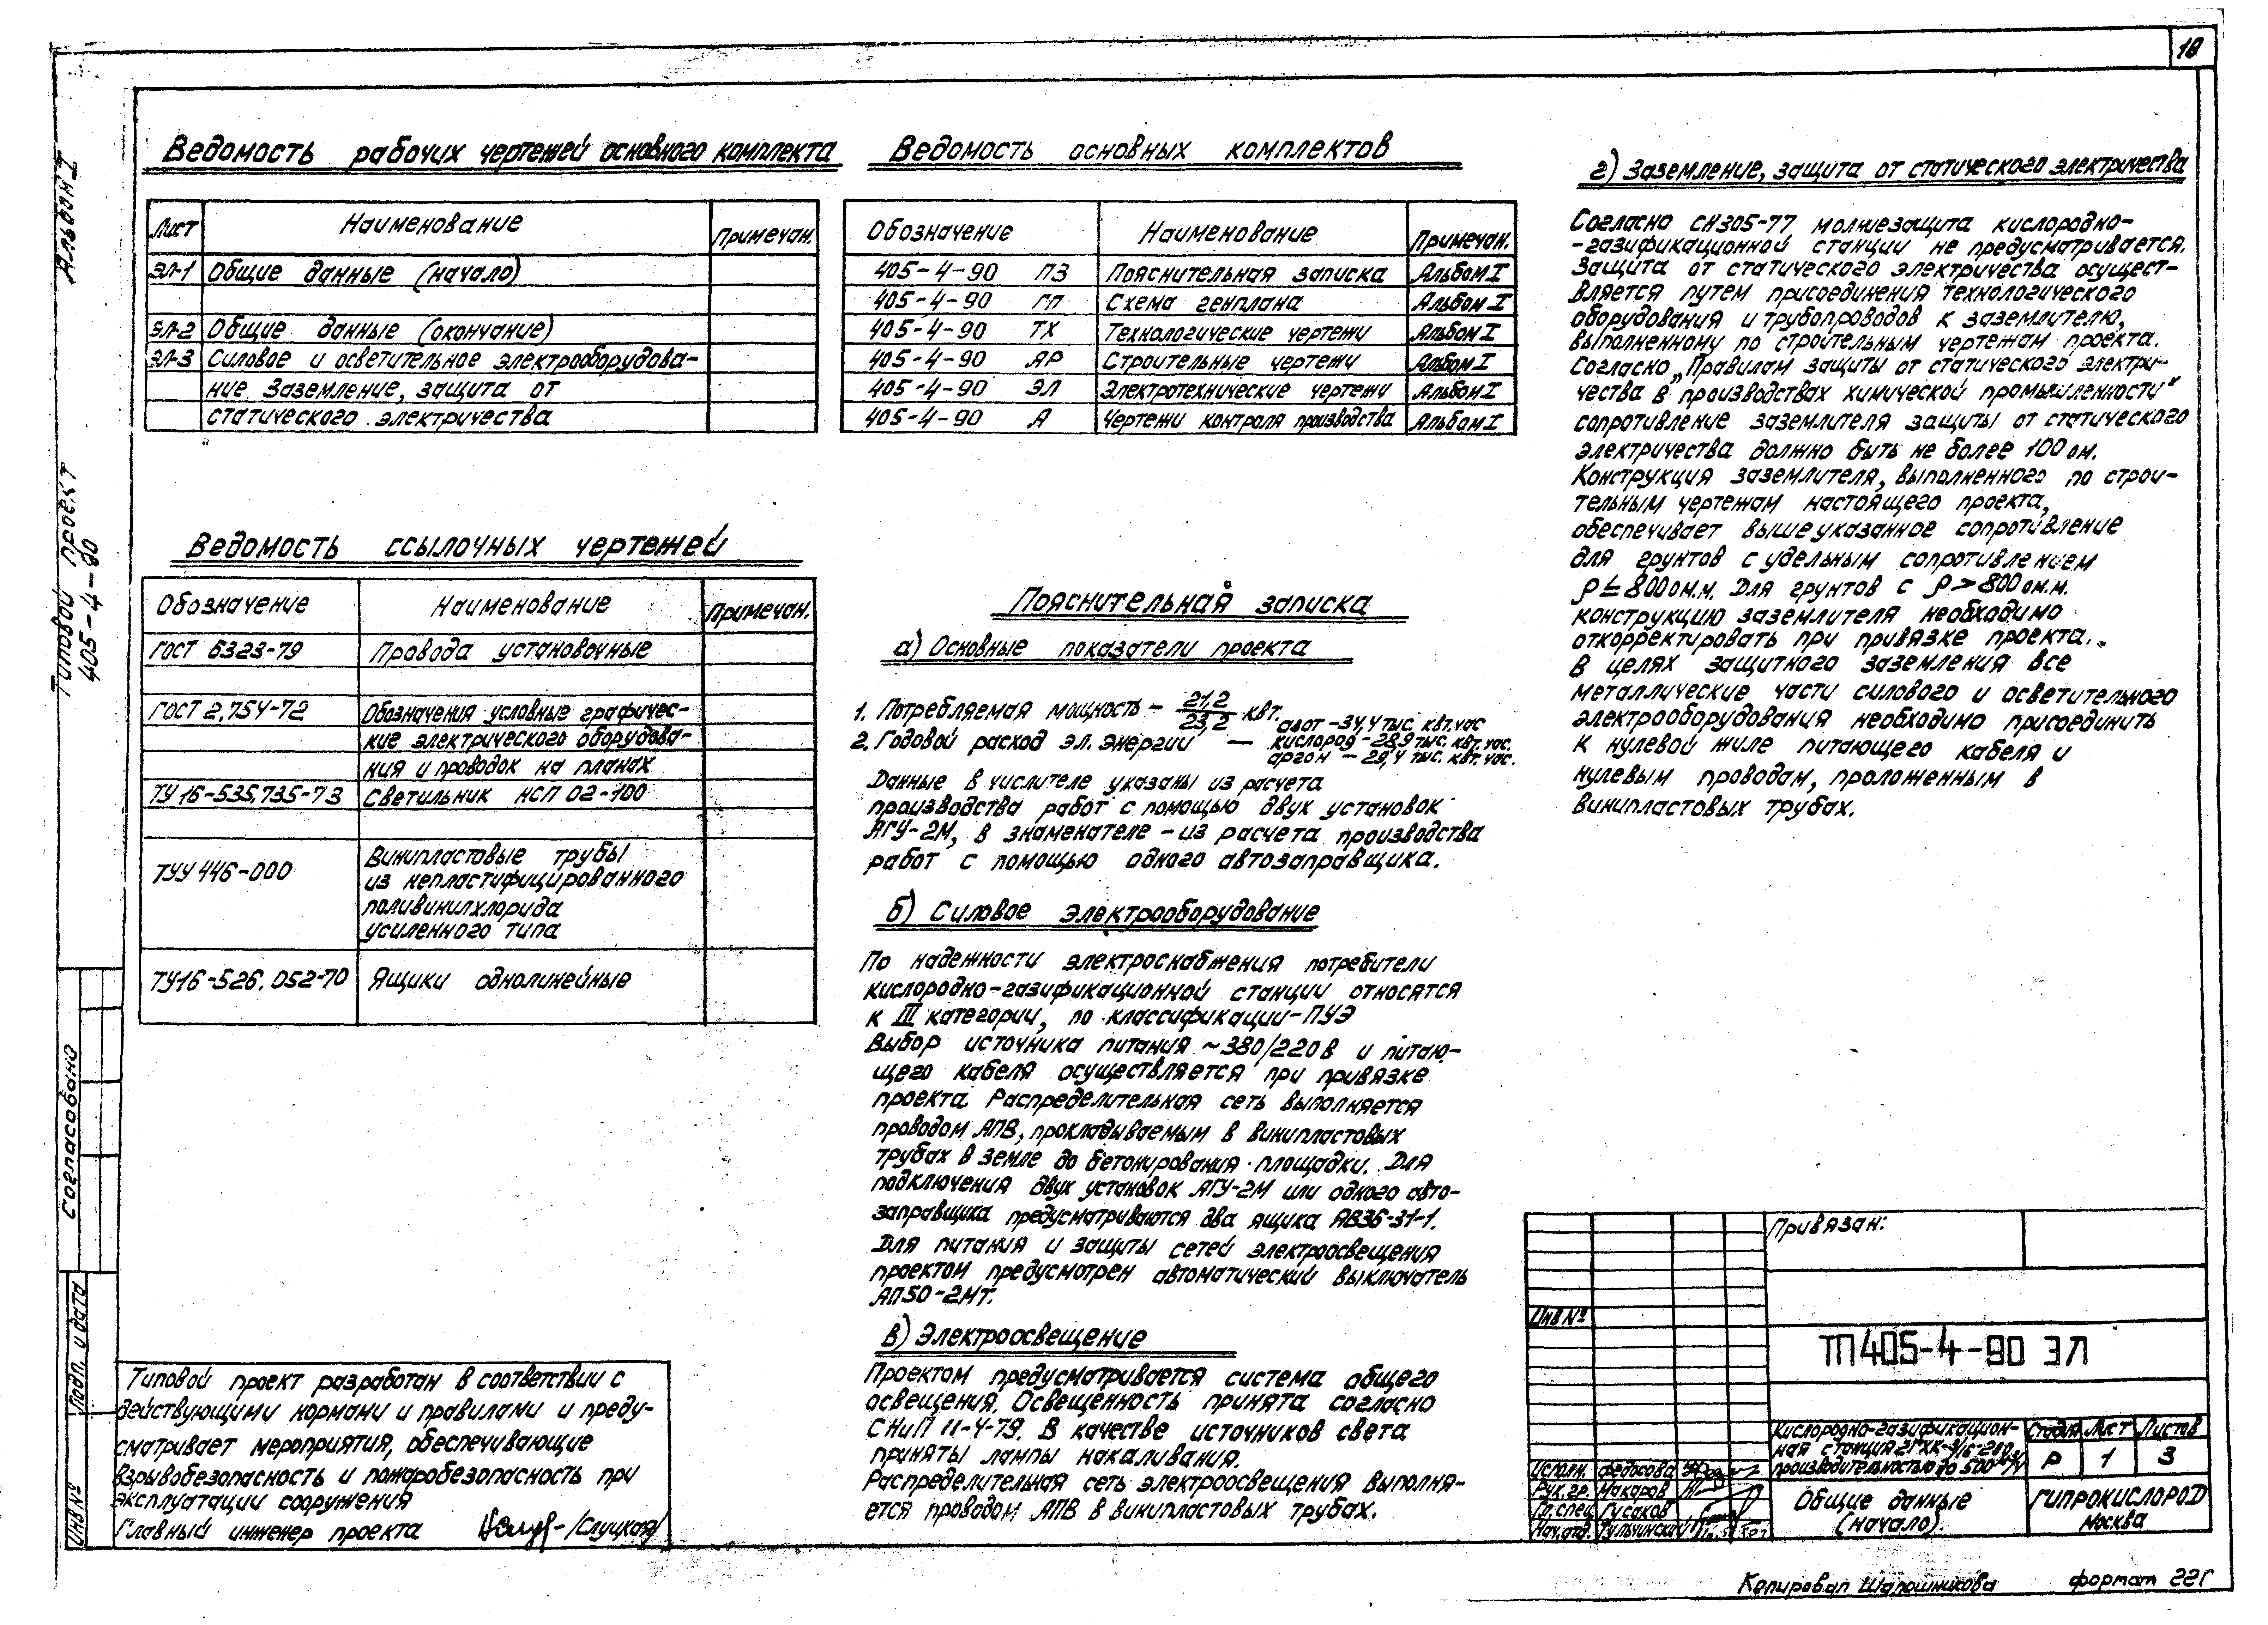 18
Альбом I
Типовой проект
405-4-90
Согласовано
Подп. и дата
Инв №
Ведомость рабочих чертежей основного комплекта
Лист Наименование Примечан.
ЭЛ-1 Общие данные (начало)
ЭЛ-2 Общие данные (окончание)
ЭЛ-3 Силовое и осветительное электрооборудова-
ние. Заземление, защита от
статического электричества
Ведомость основных комплектов
Обозначение Наименование Примечан.
405-4-90 ПЗ Пояснительная записка Альбом I
405-4-90 ГП Схема генплана Альбом I
405-4-90 ТХ Технологические чертежи Альбом I
405-4-90 АР Строительные чертежи Альбом I
405-4-90 ЭЛ Электротехнические чертежи Альбом I
405-4-90 А Чертежи контроля производства Альбом I
Ведомость ссылочных чертежей
Обозначение Наименование Примечан.
ГОСТ 6323-79 Провода установочные
ГОСТ 2.754-72 Обозначения условные графичес-
кие электрического оборудова-
ния и проводок на планах
ТУ16-535.735-73 Светильник НСП 02-100
ТУУ 446-000 Винипластовые трубы
из непластифицированного
поливинилхлорида
усиленного типа
ТУ16-526.052-70 Ящики однолинейные
Типовой проект разработан в соответствии с
действующими нормами и правилами и преду-
сматривает мероприятия, обеспечивающие
взрывобезопасность и пожаробезопасность при
эксплуатации сооружения
Главный инженер проекта /Слуцкая/
Пояснительная записка
а) Основные показатели проекта
1. Потребляемая мощность - 21,2/23,2 квт.
2. Годовой расход эл. энергии — азот - 34,4 тыс. квт. час
кислород - 28,9 тыс. квт. час.
аргон - 29,4 тыс. квт. час.
Данные в числителе указаны из расчета
производства работ с помощью двух установок
АГУ-2М, в знаменателе - из расчета производства
работ с помощью одного автозаправщика.
б) Силовое электрооборудование
По надежности электроснабжения потребители
кислородно-газификационной станции относятся
к III категории, по классификации - ПУЭ
Выбор источника питания ~380/220в и питаю-
щего кабеля осуществляется при привязке
проекта. Распределительная сеть выполняется
проводом АПВ, прокладываемым в винипластовых
трубах в земле до бетонирования площадки. Для
подключения двух установок АГУ-2М или одного авто-
заправщика предусматриваются два ящика ЯВ36-31-1.
Для питания и защиты сетей электроосвещения
проектом предусмотрен автоматический выключатель
АП50-2МТ.
в) Электроосвещение
Проектом предусматривается система общего
освещения. Освещенность принята согласно
СНиП II-4-79. В качестве источников света
приняты лампы накаливания.
Распределительная сеть электроосвещения выполня-
ется проводом АПВ в винипластовых трубах.
г) Заземление, защита от статического электричества
Согласно СН305-77 молниезащита кислородно-
-газификационной станции не предусматривается.
Защита от статического электричества осущест-
вляется путем присоединения технологического
оборудования и трубопроводов к заземлителю,
выполненному по строительным чертежам проекта.
Согласно „Правилам защиты от статического электри-
чества в производствах химической промышленности"
сопротивление заземлителя защиты от статического
электричества должно быть не более 100 ом.
Конструкция заземлителя, выполненного по строи-
тельным чертежам настоящего проекта,
обеспечивает выше указанное сопротивление
для грунтов с удельным сопротивлением
ρ ≤ 800 ом.м. Для грунтов с ρ > 800 ом.м.
конструкцию заземлителя необходимо
откорректировать при привязке проекта.
В целях защитного заземления все
металлические части силового и осветительного
электрооборудования необходимо присоединить
к нулевой жиле питающего кабеля и
нулевым проводам, проложенным в
винипластовых трубах.
Привязан:
Инв №
ТП405-4-90 ЭЛ
Кислородно-газификацион-
ная станция
производительностью до 500
Стадия Лист Листов
Р 1 3
Исполн. Федосова
Рук. гр. Макаров
Гл. спец. Гусаков
Нач. отд.
Общие данные
(начало).
ГИПРОКИСЛОРОД
Москва
Копировал Шапошникова формат 22Г